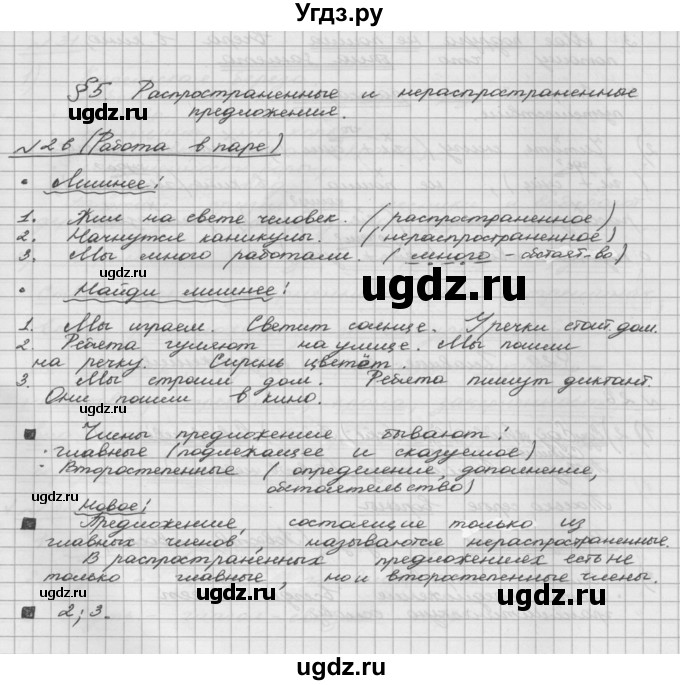 Угдз.ру
§5 Распространенные и нераспространенные
предложения.
№26 (Работа в паре)
• Лишнее:
1. Жил на свете человек. (распространенное)
2. Начнутся каникулы. (нераспространенное)
3. Мы много работали. (много - обстоят-во)
• Найди лишнее:
1. Мы играем. Светит солнце. У речки стоит дом.
2. Ребята гуляют на улице. Мы пошли
на речку. Сирень цветёт.
3. Мы строим дом. Ребята пишут диктант.
Они пошли в кино.
Члены предложения бывают:
· главные (подлежащее и сказуемое)
· Второстепенные (определение, дополнение,
обстоятельство)
Новое:
Предложения, состоящие только из
главных членов, называются нераспространенные.
В распространённых предложениях есть не
только главные, но и второстепенные члены.
2; 3.
ugdz.ru
ugdz.ru
ugdz.ru
ugdz.ru
ugdz.ru
ugdz.ru
ugdz.ru
ugdz.ru
ugdz.ru
ugdz.ru